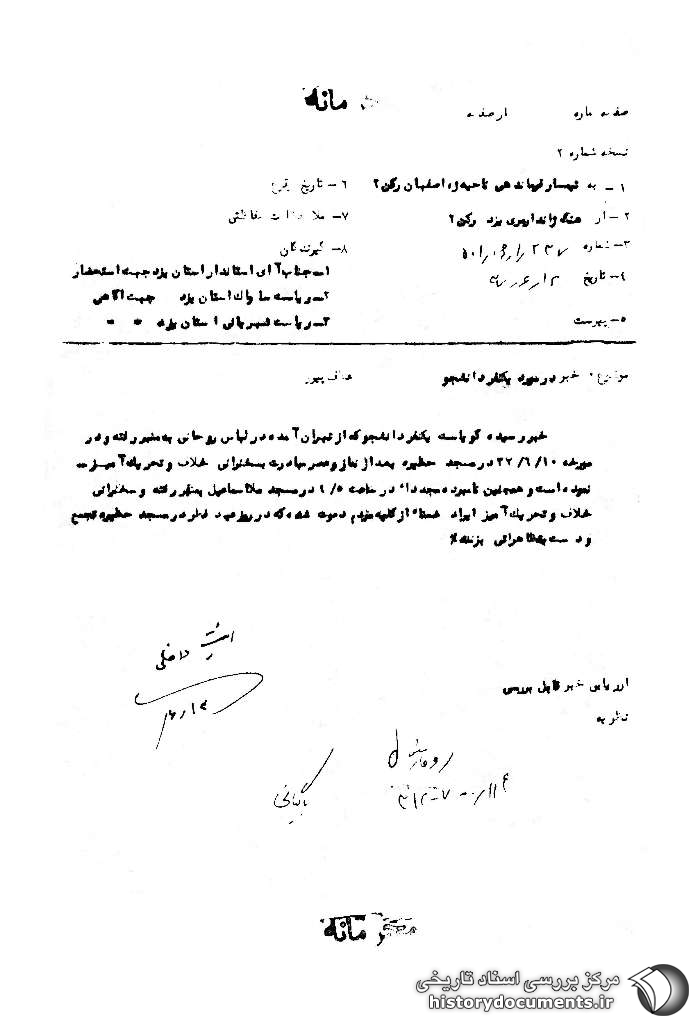 مانه
صفحه ماره از صفحه
نسخه شماره ۲
۱- به تیمسار فرماندهی ناحیه ژ. اصفهان رکن۲
۲- از هنگ ژاندارمری یزد رکن۲
۳- شماره
۴- تاریخ
۵- پیوست
۶- تاریخ
۷- ملاحظات حفاظتی
۸- گیرندگان
۱- جناب آقای استاندار استان یزد جهت استحضار
۲- ریاست ساواک استان یزد جهت آگاهی
۳- ریاست شهربانی استان یزد " "
موضوع: خبر در مورد یکنفر دانشجو
خبر رسیده گویاست یکنفر دانشجو که از تهران آمده در لباس روحانی به منبر رفته و در
مورخه ۳۷/۶/۱۰ در مسجد حظیره بعد از نماز و عصر مبادرت بسخنرانی خلاف و تحریک آمیز
نموده است و همچنین نامبرده مجددا" در ساعت در مسجد ملااسماعیل بمنبر رفته و سخنرانی
خلاف و تحریک آمیز ایراد ضمنا" از کلیه مردم دعوت شده که در روز عید فطر در مسجد حظیره تجمع
و دست بتظاهراتی بزنند٪
ارزیابی خبر قابل بررسی
نظریه
داخلی
محرمانه
مرکز بررسی اسناد تاریخی
historydocuments.ir